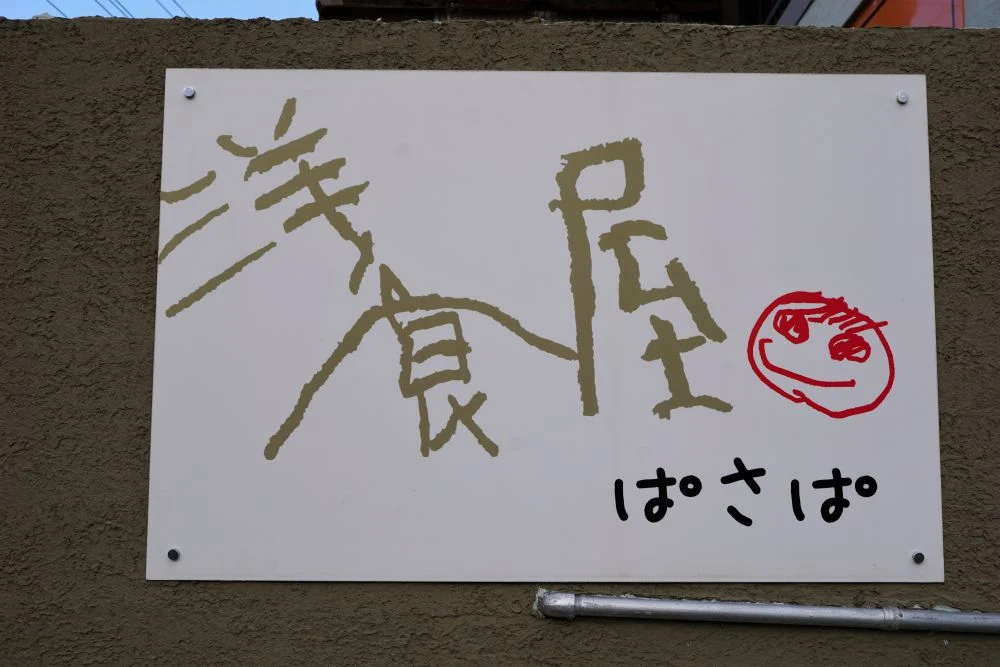 浅食屋
ぱさぱ